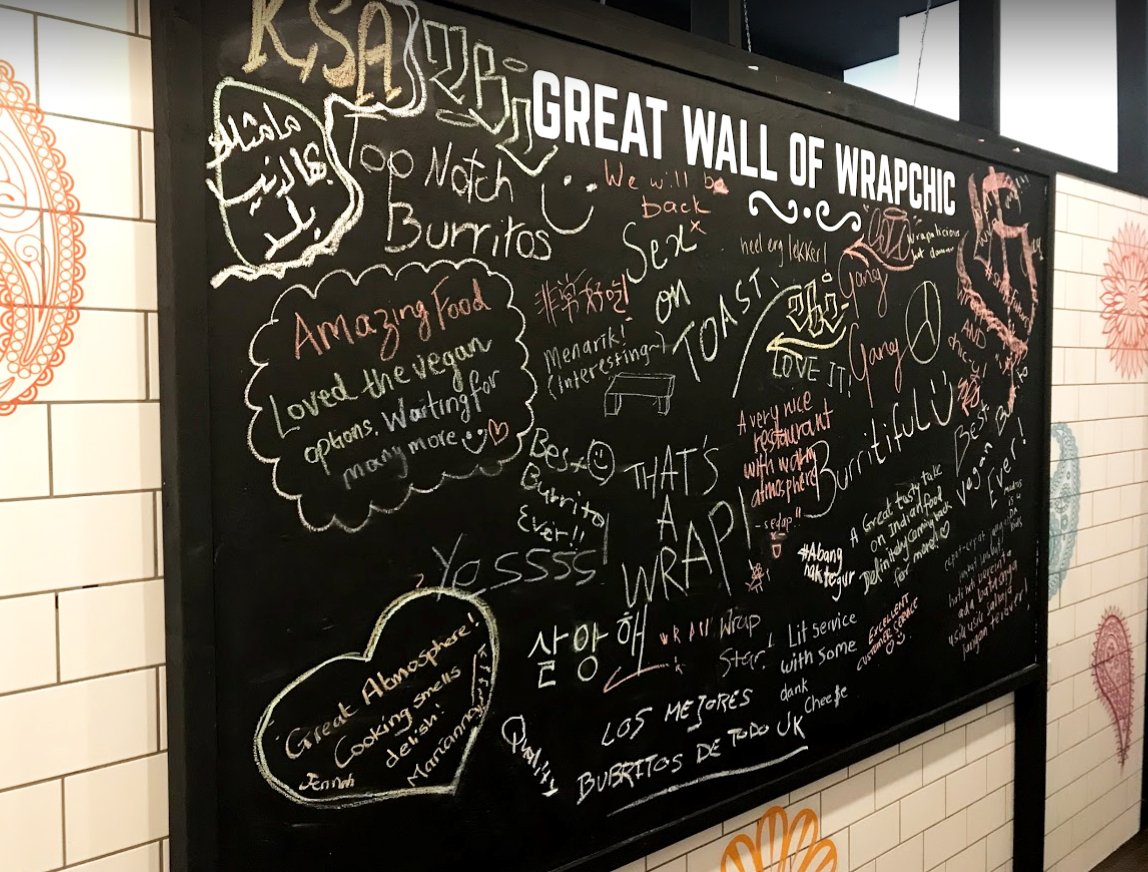 KSA
GREAT WALL OF WRAPCHIC
مامثلك
بهالدنيا
بلد
Top Notch
Burritos
We will be
back
Sex
on
TOAST
heel erg lekker!
Wrapalicious
Gang
Gang
非常好吃!
Menarik!
(Interesting~)
LOVE IT!
Amazing Food
Loved the vegan
options. Waiting for
many more
A very nice
restaurant
with warm
atmosphere
-sedap!!
Burritiful
AND
Best
Vegan
Ever!
Best
Burrito
Ever!!
THAT'S
A
WRAP!
A Great tasty take
on Indian food
Definitely coming back
for more!
#Abang
nak tegur
Yassss
살앙해
WRAP
Wrap
Star!
Lit service
with some
dank
Cheese
EXCELLENT
CUSTOMER SERVICE
Great Atmosphere!
Cooking smells
delish!
Jennah
Quality
LOS MEJORES
BUBRITOS DE TODO UK